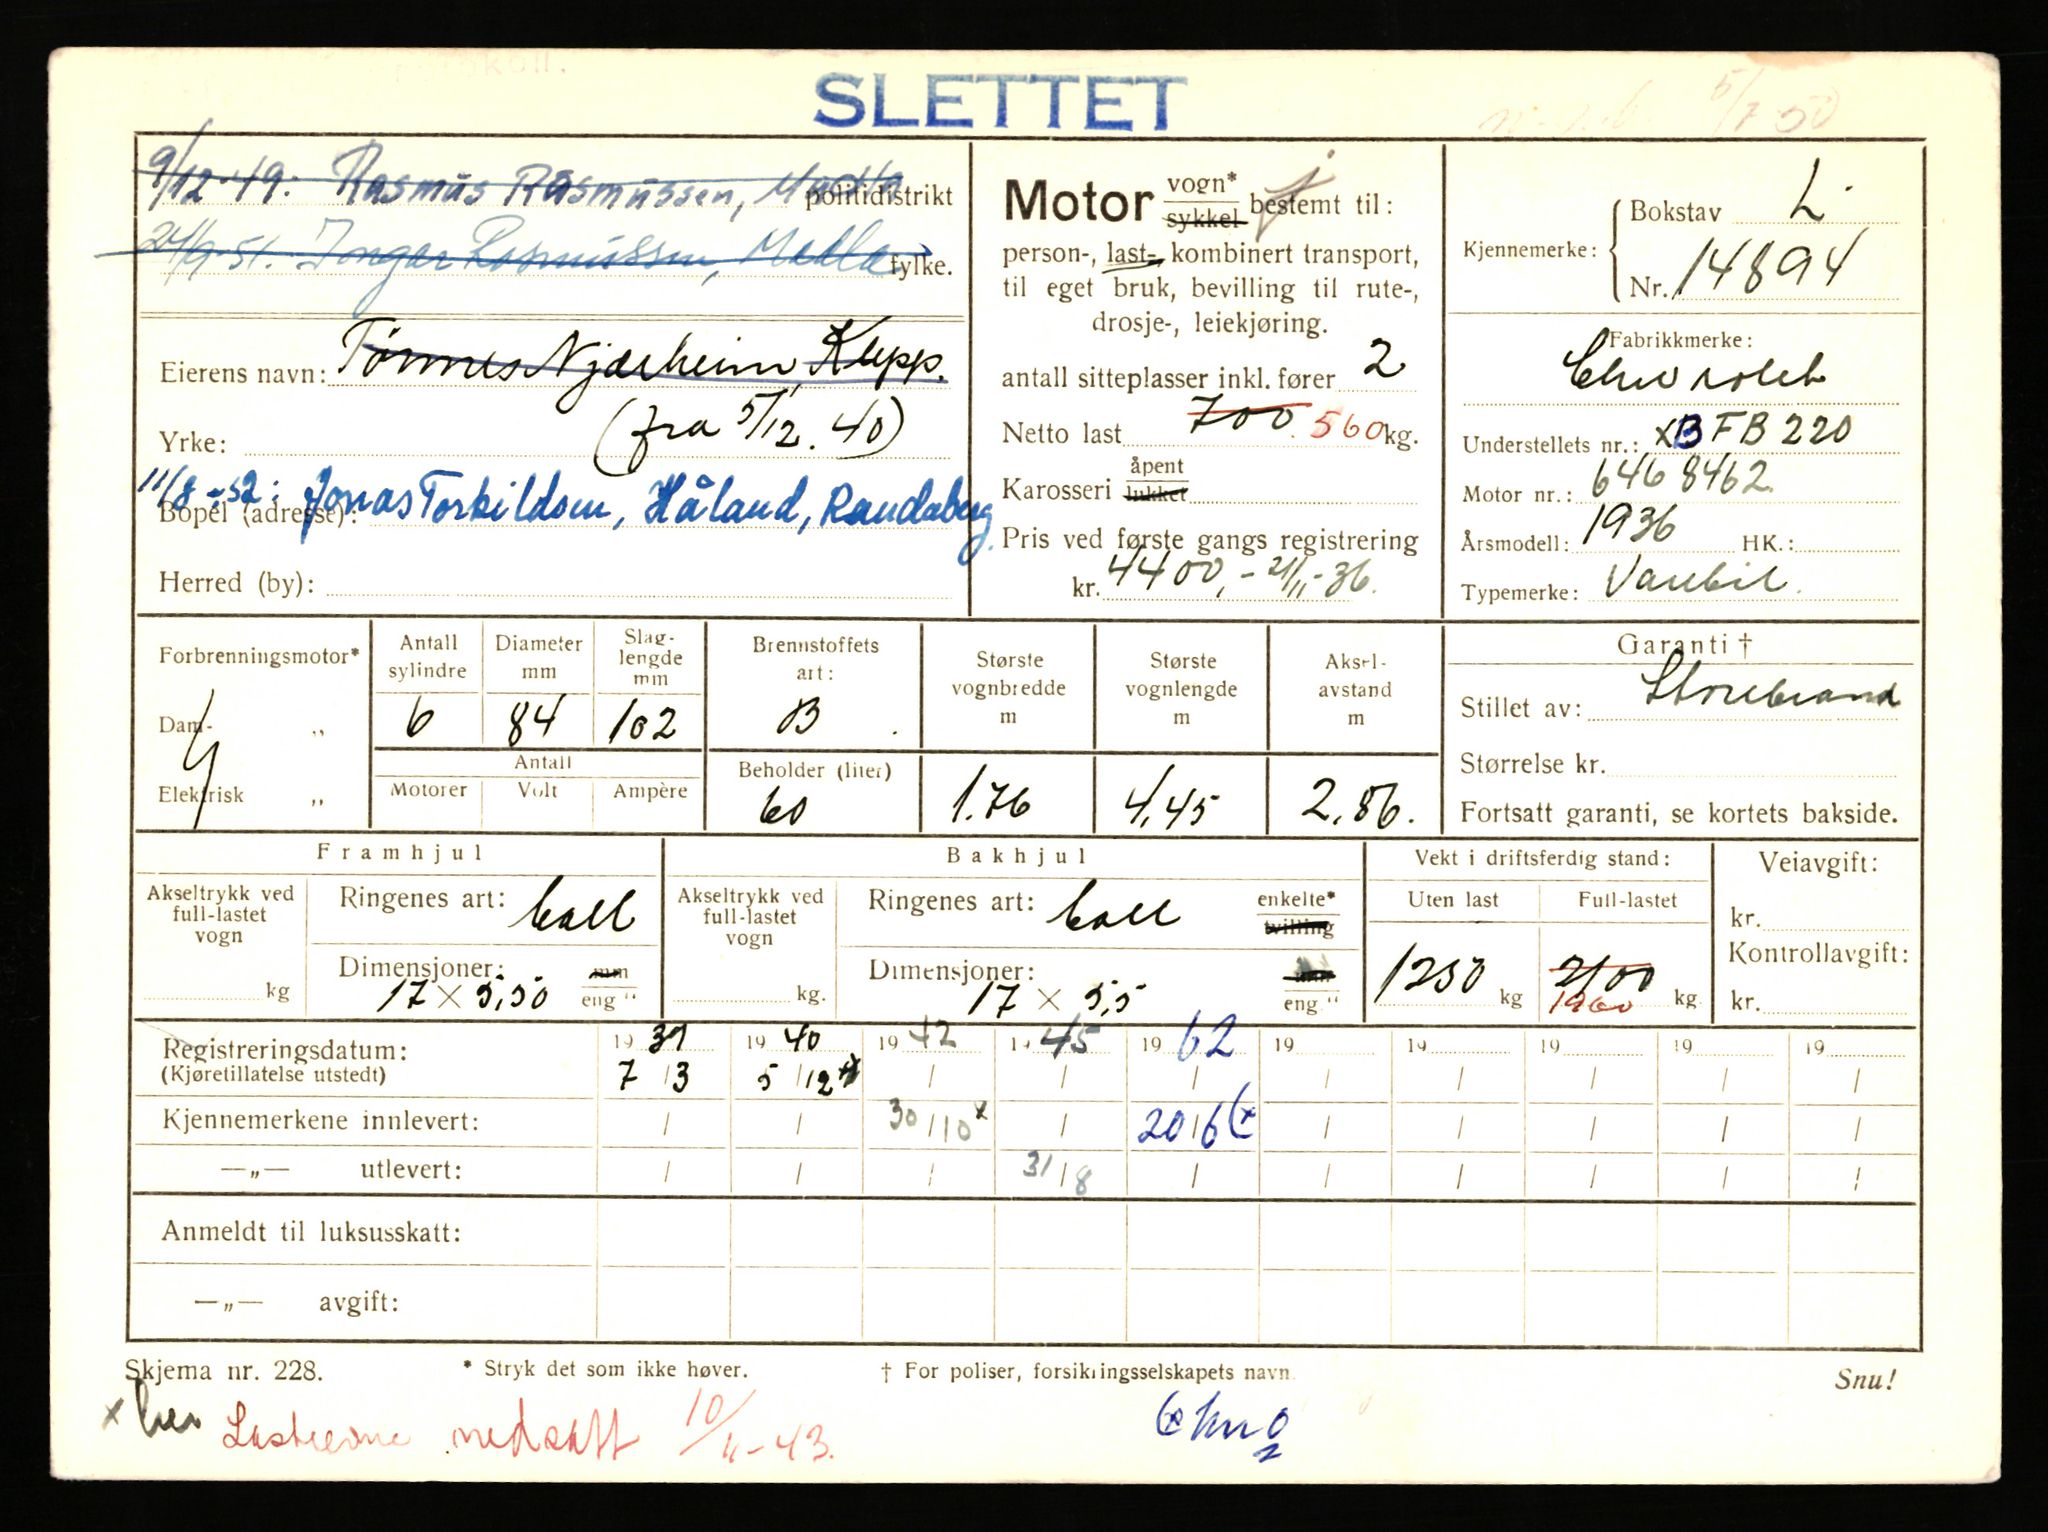 SLETTET
5/7 50
9/12-49: Rasmus Rasmussen, Madla politidistrikt
Ingar Rasmussen, Madla fylke.
Eierens navn: Tønnes Njærheim, Klepp.
Yrke: (fra 5/12.40)
11/8-52: Jonas Torkildsen, Håland, Randaberg.
Bopel (adresse):
Herred (by):
Motor vogn* sykkel bestemt til:
person-, last-, kombinert transport,
til eget bruk, bevilling til rute-,
drosje-, leiekjøring.
antall sitteplasser inkl. fører 2
Netto last 700 560 kg.
Karosseri åpent lukket
Pris ved første gangs registrering
kr. 4400,- 21/11-36.
Kjennemerke: Bokstav L
Nr. 14894
Fabrikkmerke:
Chevrolet
Understellets nr.: XB FB 220
Motor nr.: 6468462
Årsmodell: 1936 HK.:
Typemerke: Varebil
Forbrenningsmotor*
Dam- „
Elektrisk „
Antall sylindre Diameter mm Slag-lengde mm
6 84 102
Antall
Motorer Volt Ampère
Brennstoffets art:
B
Beholder (liter)
60
Største vognbredde m
1.76
Største vognlengde m
4,45
Aksel-avstand m
2,86.
Garanti †
Stillet av: Storebrand
Størrelse kr.
Fortsatt garanti, se kortets bakside.
Framhjul
Akseltrykk ved full-lastet vogn
kg
Ringenes art: ball
Dimensjoner: mm
17 × 5,50 eng "
Bakhjul
Akseltrykk ved full-lastet vogn
kg.
Ringenes art: ball enkelte* tvilling
Dimensjoner:
17 × 5,5 eng."
Vekt i driftsferdig stand:
Uten last Full-lastet
1250 kg 2100 1960 kg.
Veiavgift:
kr.
Kontrollavgift:
kr.
Registreringsdatum: 19 37 19 40 19 42 19 45 19 62 19 19 19 19 19
(Kjøretillatelse utstedt) 7/3 5/12 / / / / / / / /
Kjennemerkene innlevert: / / 30/10 x / 20/6 (x / / / / /
—„— utlevert: / / / 31/8 / / / / / /
Anmeldt til luksusskatt:
—„— avgift:
Skjema nr. 228. * Stryk det som ikke høver. † For poliser, forsikringsselskapets navn. Snu!
x Lasteevne nedsatt 10/11-43.